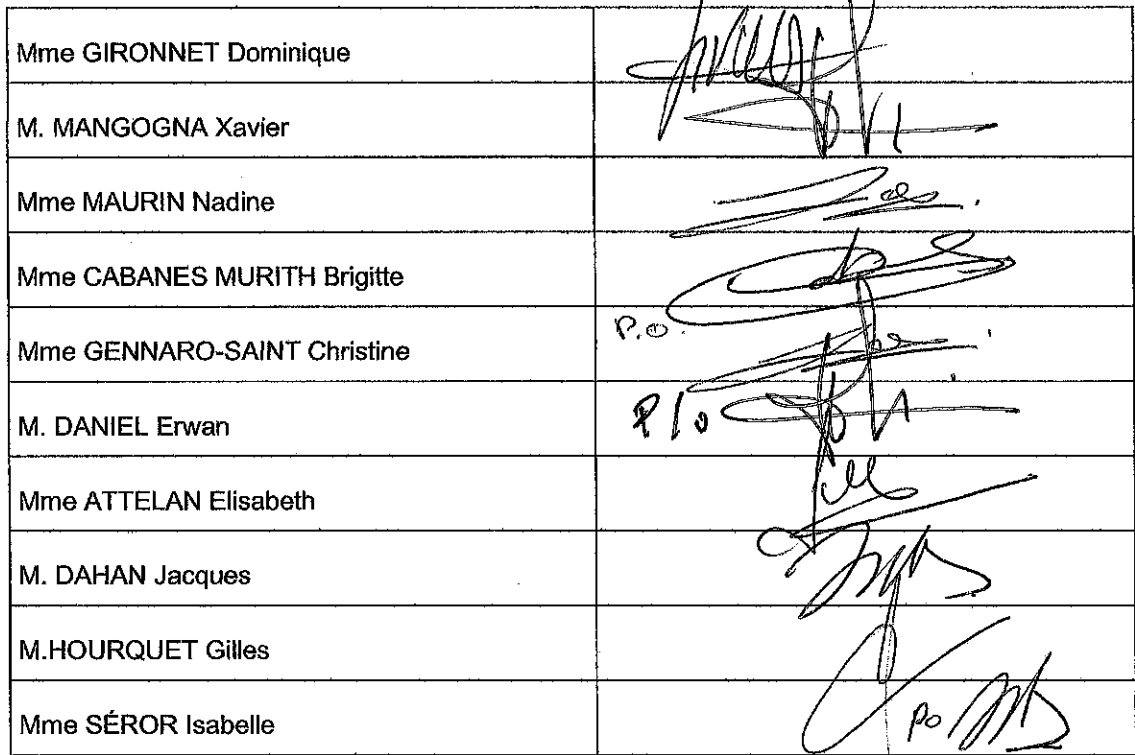 Mme GIRONNET Dominique
M. MANGOGNA Xavier
Mme MAURIN Nadine
Mme CABANES MURITH Brigitte
Mme GENNARO-SAINT Christine
P.O.
M. DANIEL Erwan
P/o
Mme ATTELAN Elisabeth
M. DAHAN Jacques
M.HOURQUET Gilles
Mme SÉROR Isabelle
po